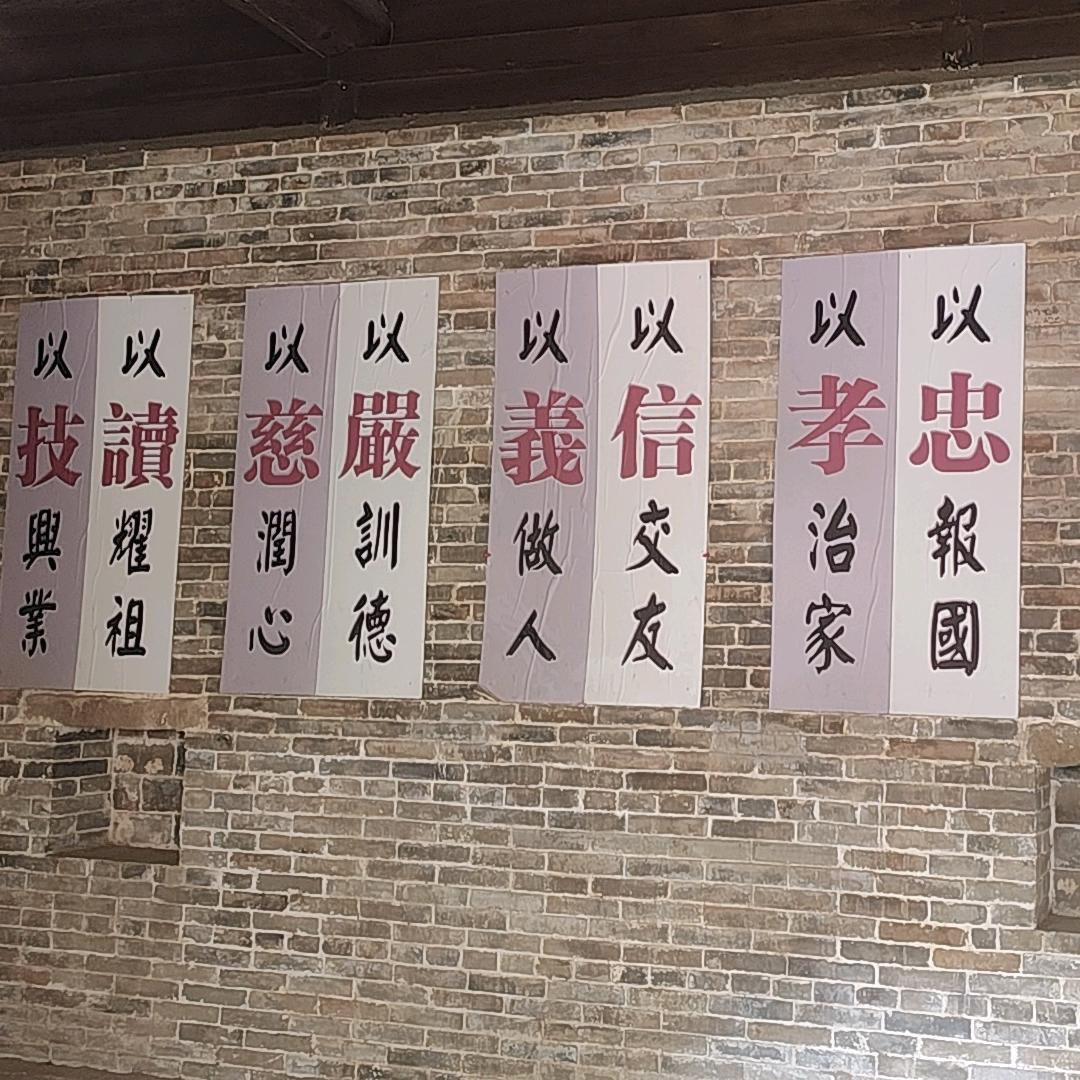 以忠報國
以孝治家
以信交友
以義做人
以嚴訓德
以慈潤心
以讀耀祖
以技興業